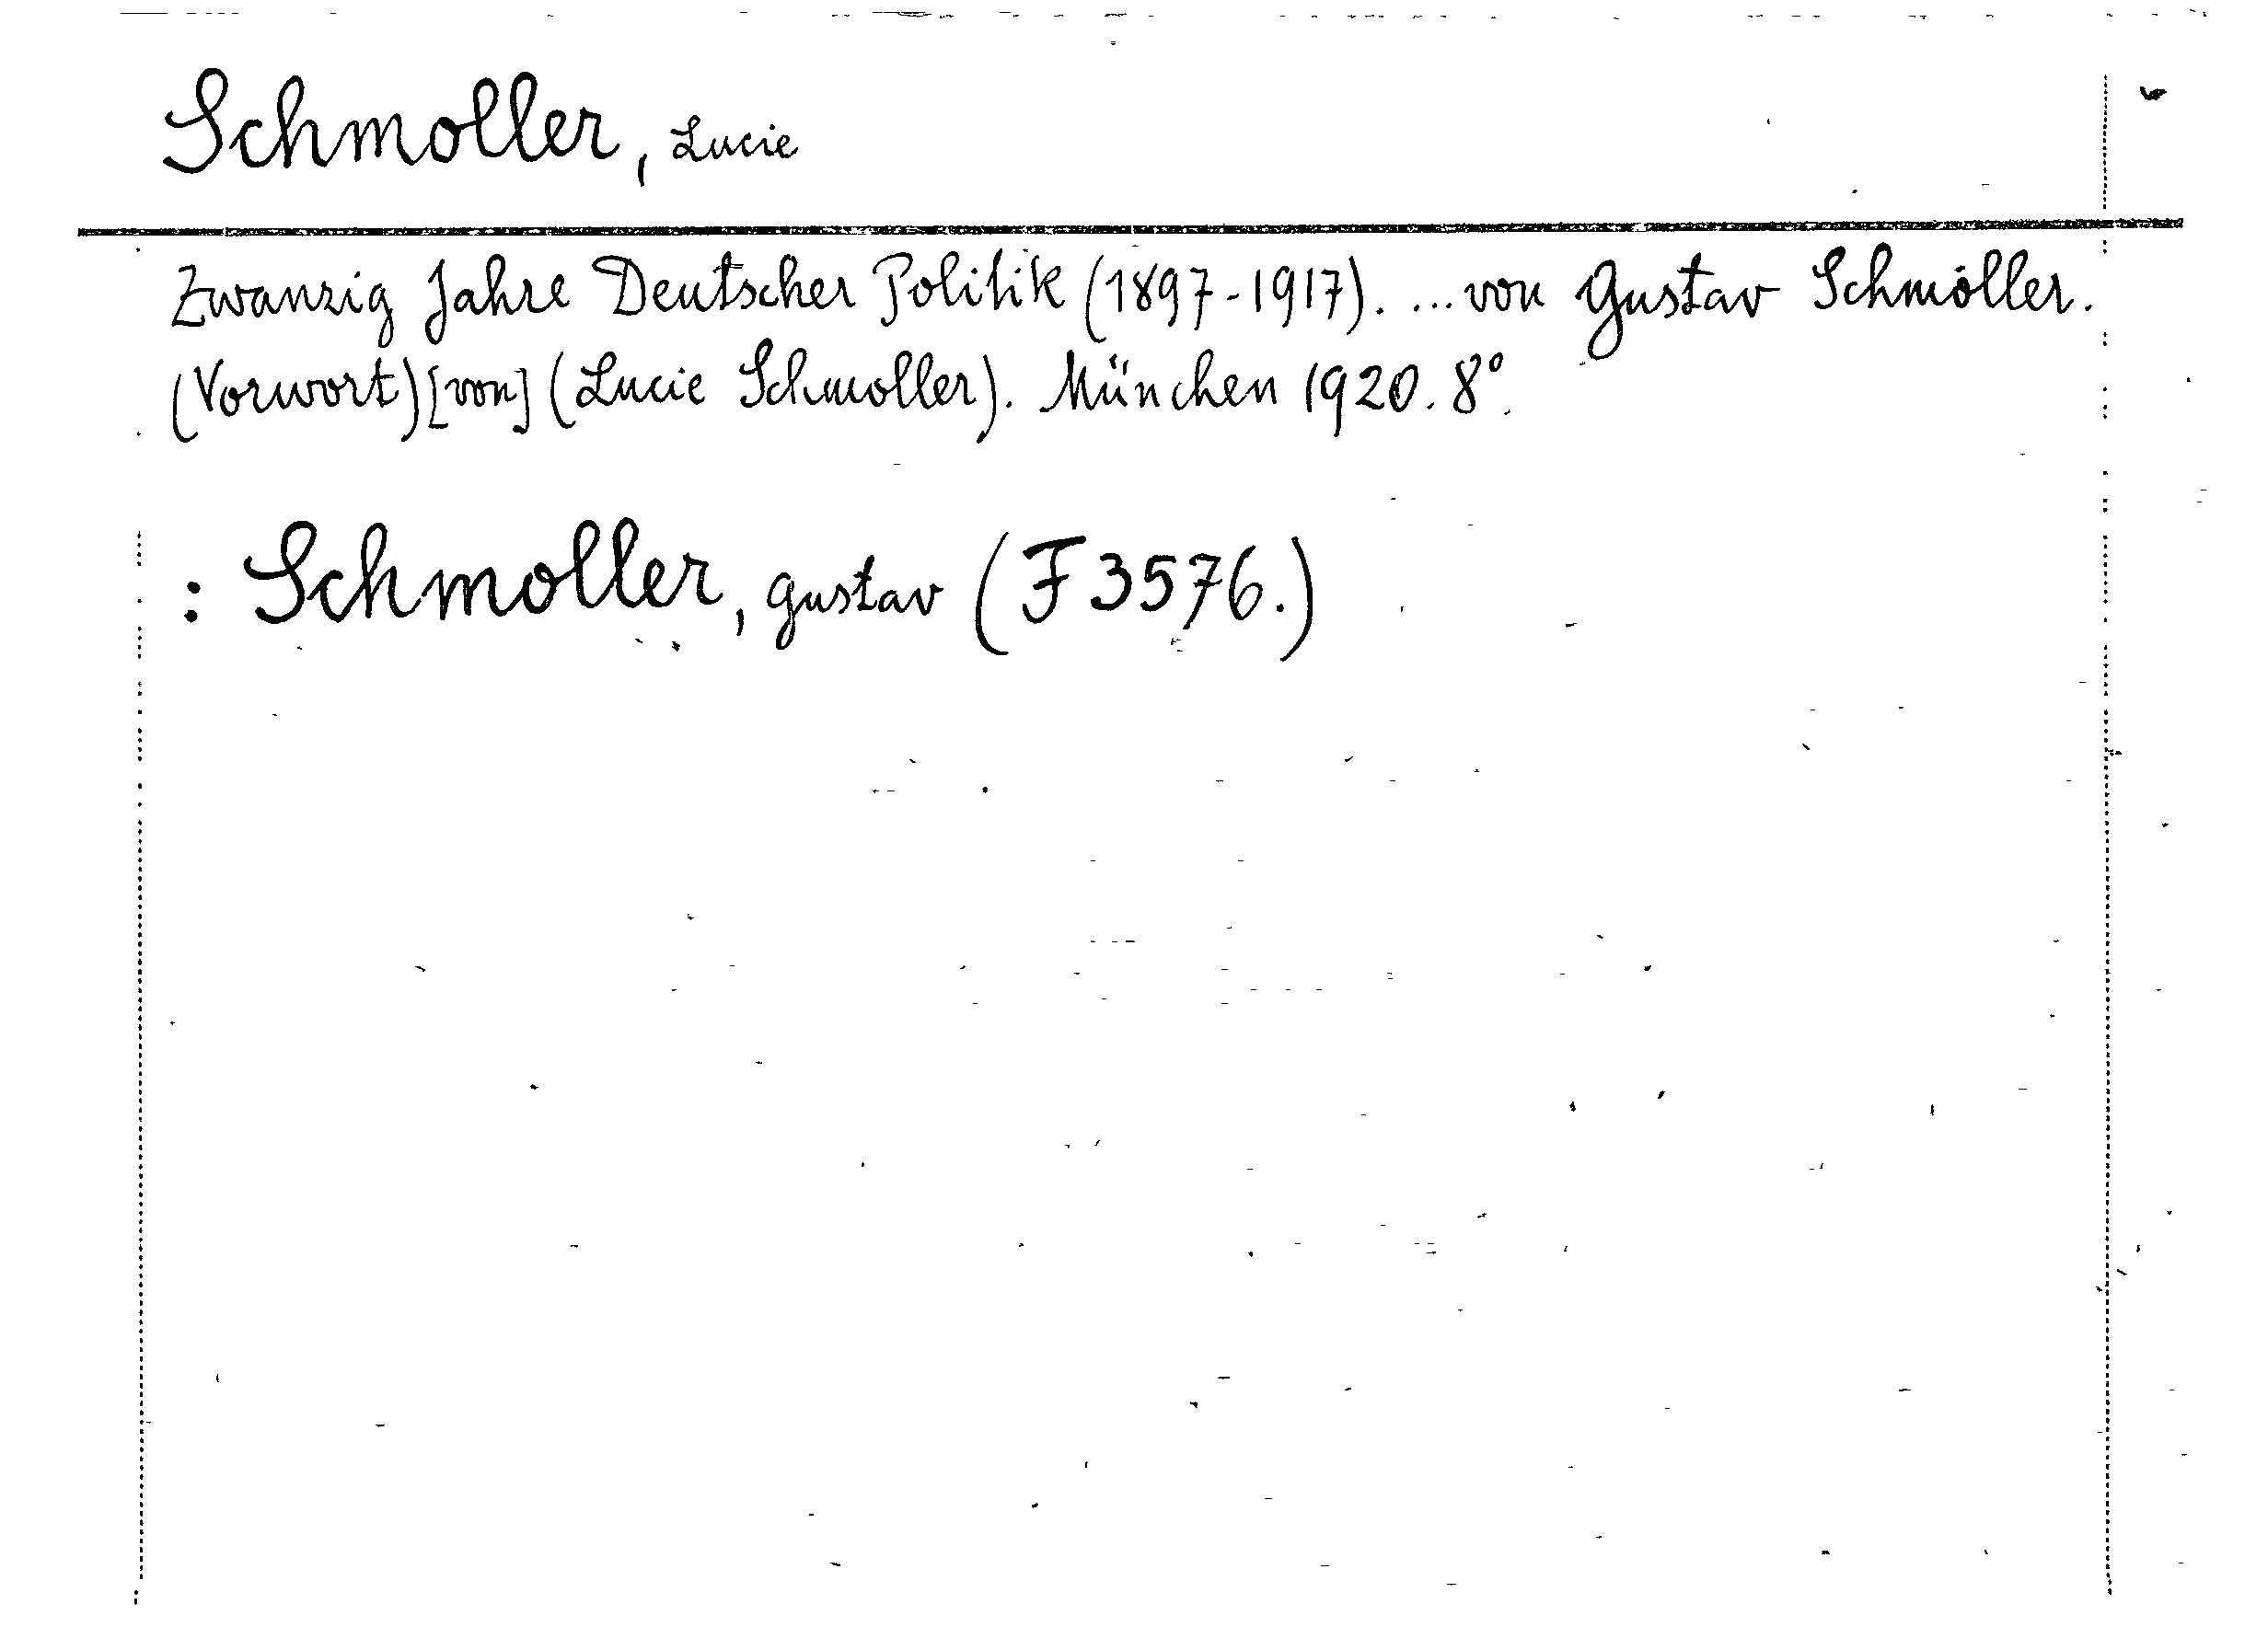 Schmoller, Lucie
Zwanzig Jahre Deutscher Politik (1897-1917). ... von Gustav Schmoller.
(Vorwort) [von] (Lucie Schmoller). München 1920. 8°.
: Schmoller, Gustav (F 3576.)